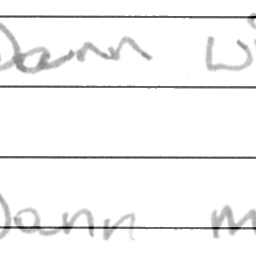 Dann wi
Dann m